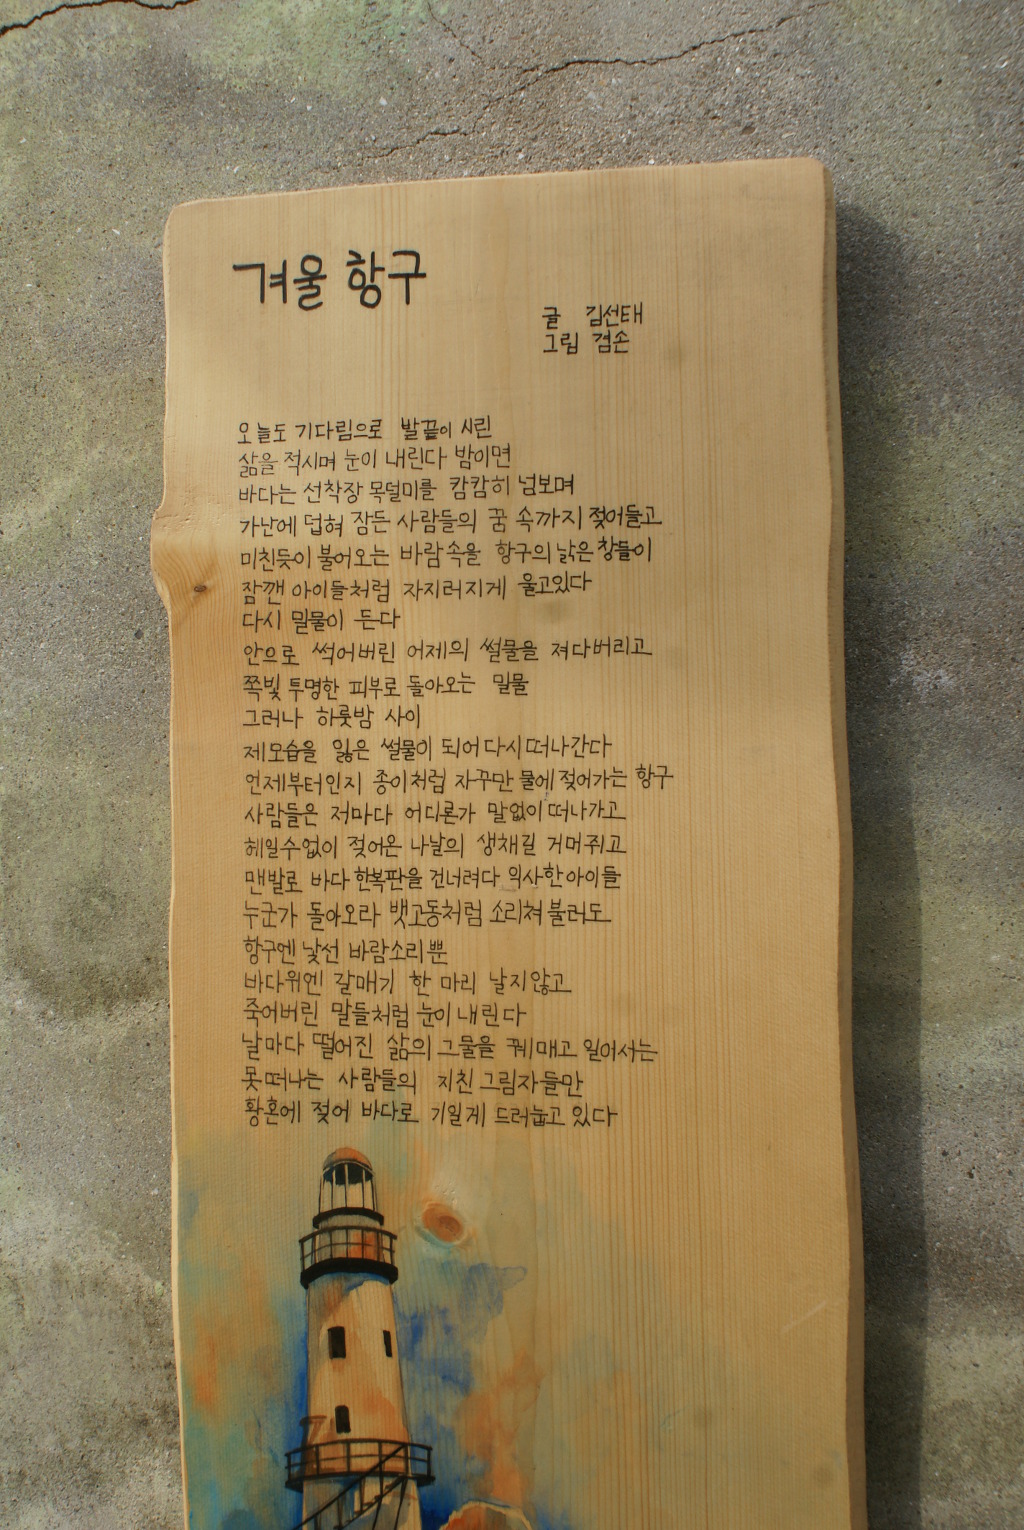 겨울 항구
글 김선태
그림 겸손
오늘도 기다림으로 발끝이 시린
삶을 적시며 눈이 내린다 밤이면
바다는 선착장 목덜미를 캄캄히 넘보며
가난에 덥혀 잠든 사람들의 꿈 속까지 젖어들고
미친듯이 불어오는 바람속을 항구의 낡은 창들이
잠깬 아이들처럼 자지러지게 울고있다
다시 밀물이 든다
안으로 썩어버린 어제의 썰물을 져다버리고
쪽빛 투명한 피부로 돌아오는 밀물
그러나 하룻밤 사이
제모습을 잃은 썰물이 되어다시떠나간다
언제부터인지 종이처럼 자꾸만 물에젖어가는 항구
사람들은 저마다 어디론가 말없이떠나가고
헤일수없이 젖어온 나날의 생채길 거머쥐고
맨발로 바다한복판을 건너려다 익사한아이들
누군가 돌아오라 뱃고동처럼 소리쳐불러도
항구엔 낯선 바람소리뿐
바다위엔 갈매기 한 마리 날지않고
죽어버린 말들처럼 눈이내린다
날마다 떨어진 삶의 그물을 꿰매고 일어서는
못떠나는 사람들의 지친그림자들만
황혼에 젖어 바다로 기일게 드러눕고 있다